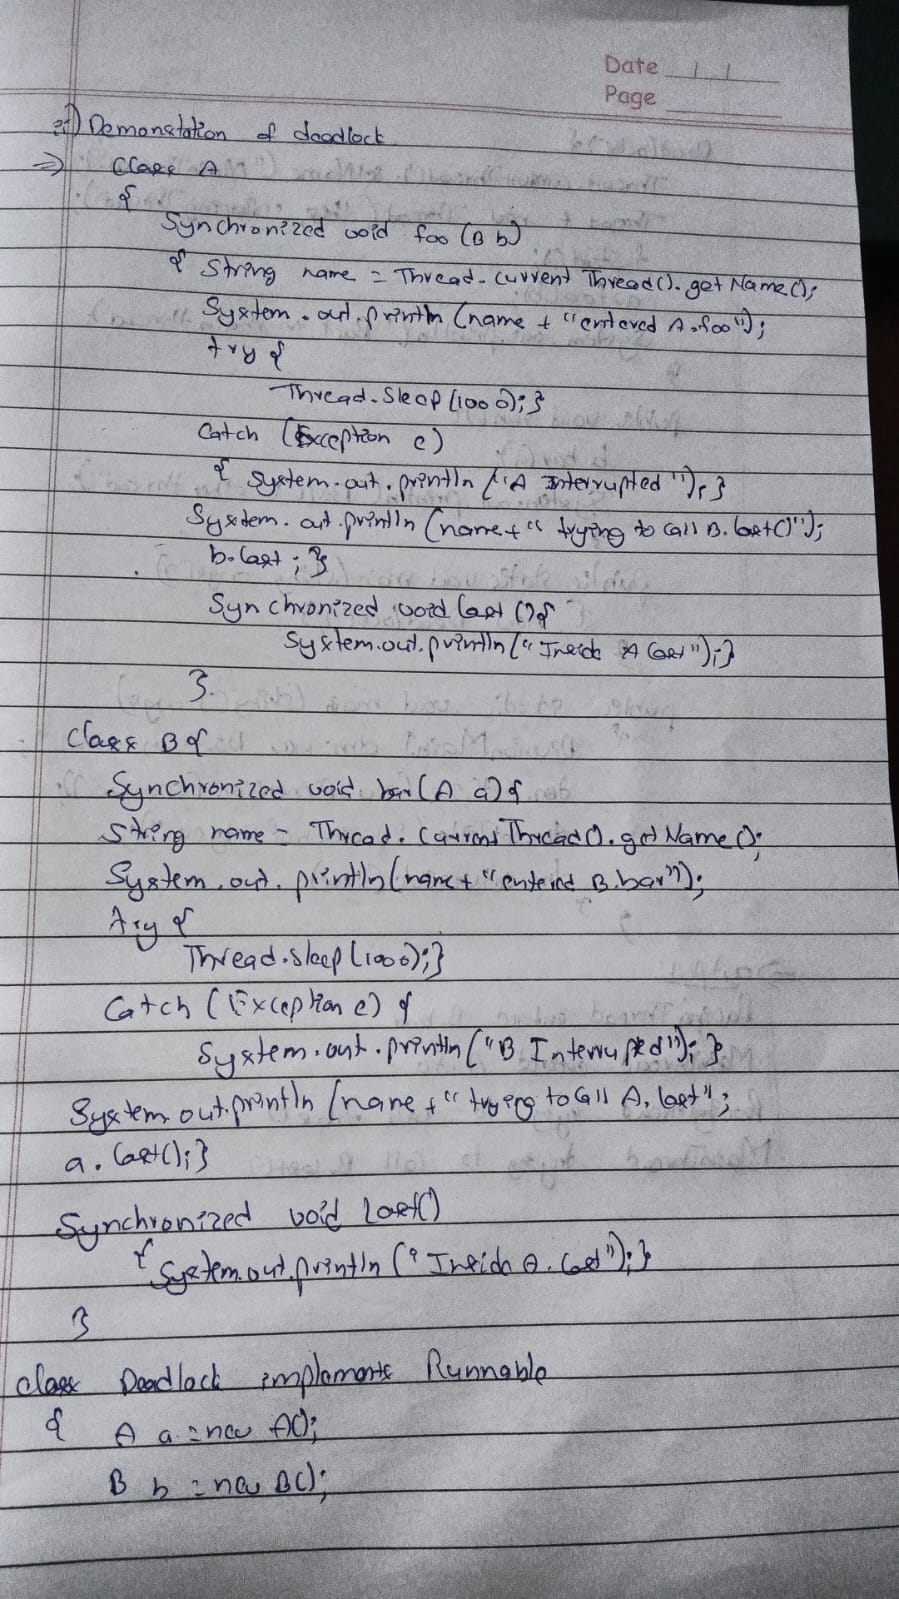 Date / /
Page
Demonstation of deadlock.
⇒ Class A
{
Synchronized void foo (B b)
{ String name = Thread. current Thread(). get Name();
System . out. println (name + "entered A.foo");
try {
Thread. Sleep (1000);}
Catch (Exception e)
{ System. out. println ("A Interrupted");}
System. out. println (name + " trying to call B. last()");
b. last ; }
Synchronized void last () {
System.out. println (" Inside A last ");}
}
Class B {
Synchronized void bar (A a) {
String name = Thread. Current Thread(). get Name ();
System. out. println (name + "enterd B.bar");
try {
Thread. sleep (1000);}
Catch (Exception e) {
System. out . println ("B Interrupted"); }
System out. println (name + " trying to Call A. last" ;
a. last();}
Synchronized void last()
{ System. out. println (" Inside A. last");}
}
class Deadlock implements Runnable
{ A a = new A();
B b = new B();